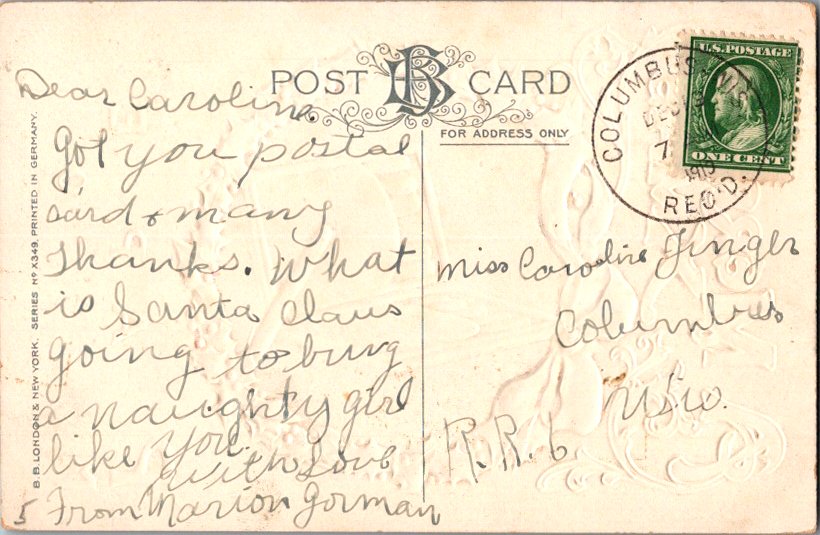 POST CARD
FOR ADDRESS ONLY
B.B. LONDON & NEW YORK. SERIES Nº X349. PRINTED IN GERMANY.
U.S. POSTAGE
ONE CENT
COLUMBUS, WIS.
DEC
7
1910
REC'D.
Dear Caroline
Got you postal
card & many
Thanks. What
is Santa Claus
going to bring
a naughty girl
like you.
with love
From Marion Gorman
5
Miss Caroline Jinger
Columbus
Wis.
R.R. 6